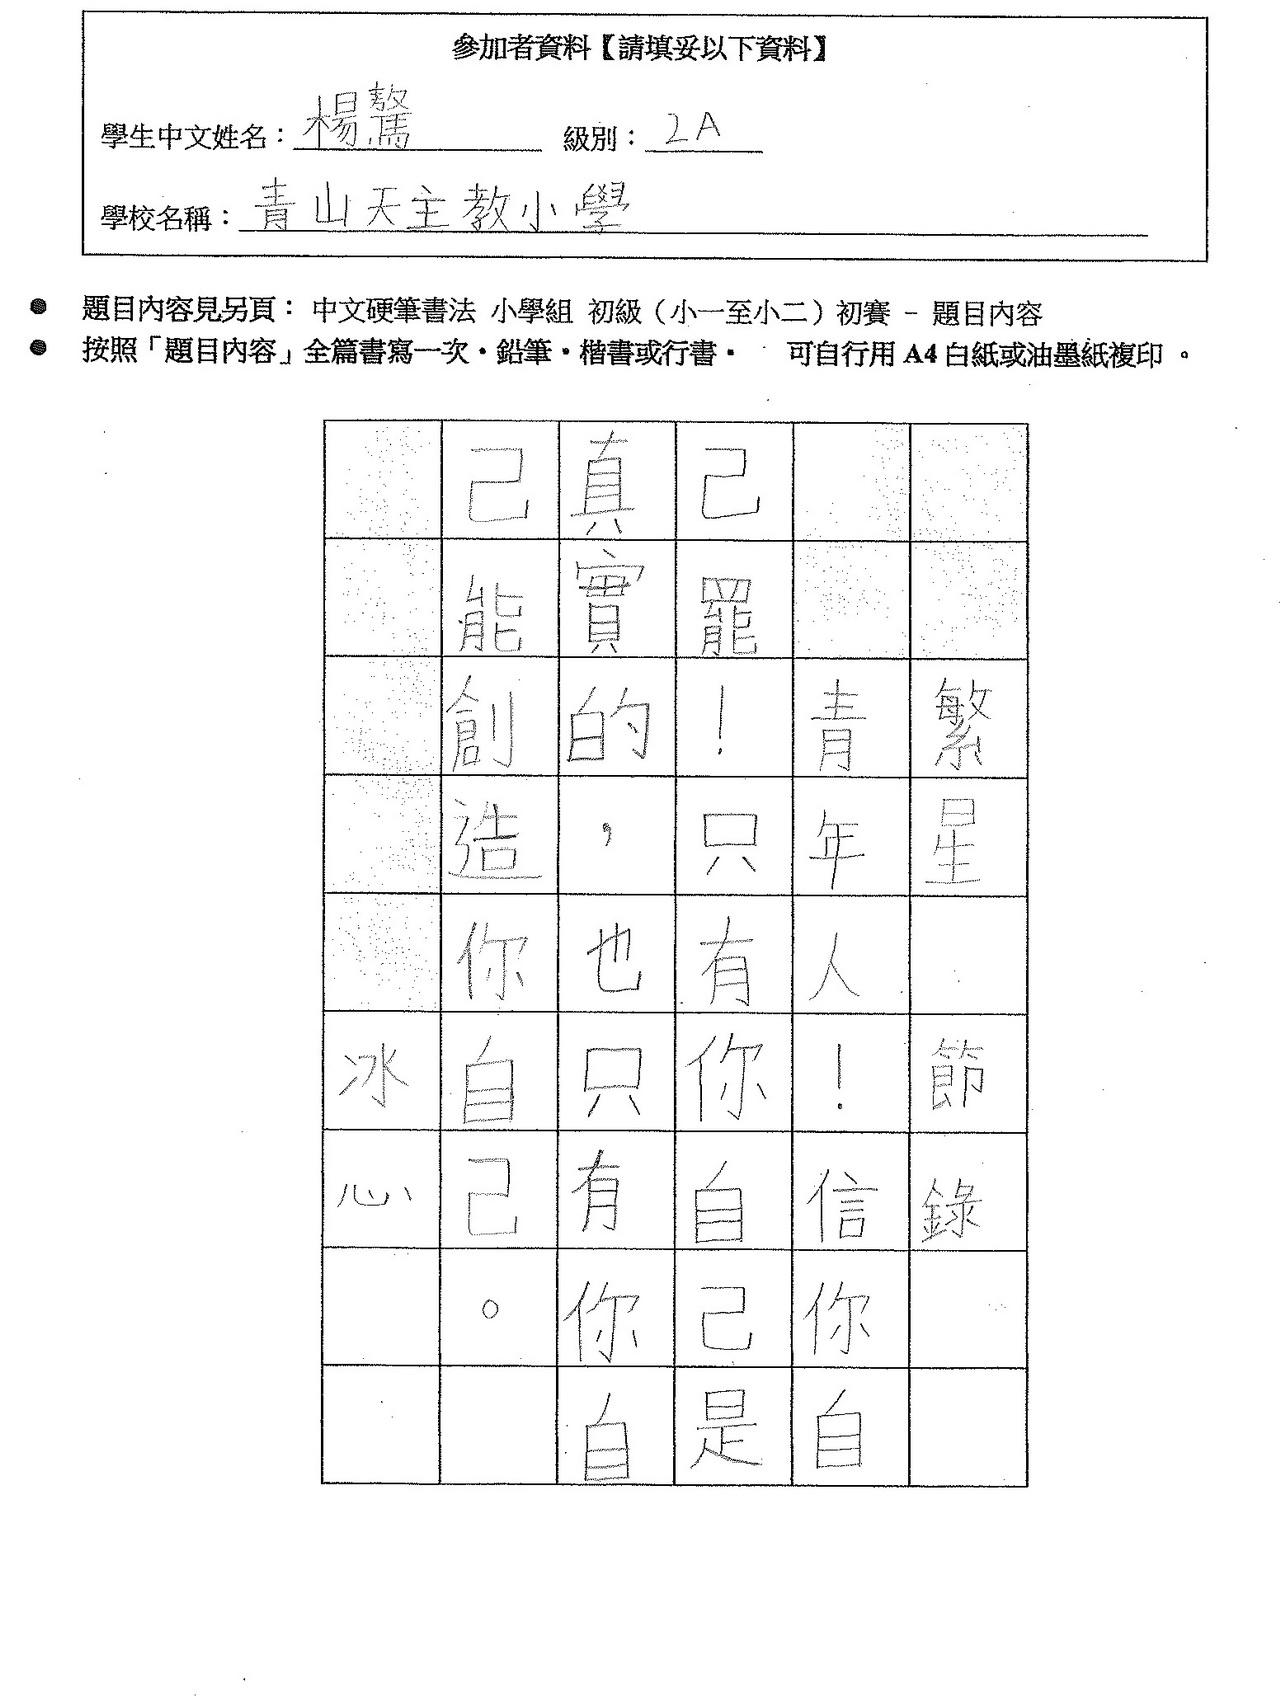 參加者資料【請填妥以下資料】
學生中文姓名：楊驁 級別：2A
學校名稱：青山天主教小學
● 題目內容見另頁： 中文硬筆書法 小學組 初級（小一至小二）初賽 – 題目內容
● 按照「題目內容」全篇書寫一次・鉛筆・楷書或行書・ 可自行用 A4 白紙或油墨紙複印 。
繁星 節錄
青年人！信你自
己罷！只有你自己是
真實的，也只有你自
己能創造你自己。
冰心